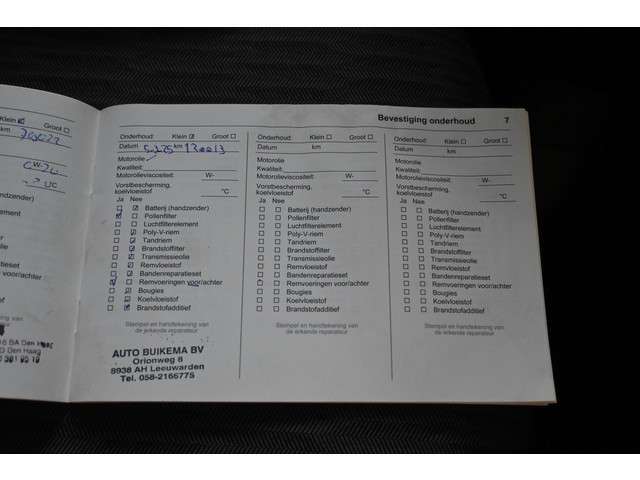 Bevestiging onderhoud 7
Klein Groot
km
W-
°C
(handzender)
element
esset
voor/achter
tekening van
reparateur
Den Haag
Onderhoud: Klein Groot
Datum km
Motorolie
Kwaliteit:
Motorolieviscositeit: W-
Vorstbescherming,
koelvloeistof °C
Ja Nee
Batterij (handzender)
Pollenfilter
Luchtfilterelement
Poly-V-riem
Tandriem
Brandstoffilter
Transmissieolie
Remvloeistof
Bandenreparatieset
Remvoeringen voor/achter
Bougies
Koelvloeistof
Brandstofadditief
Stempel en handtekening van
de erkende reparateur
AUTO BUIKEMA BV
Orionweg 8
8938 AH Leeuwarden
Tel. 058-2166775
Onderhoud: Klein Groot
Datum km
Motorolie
Kwaliteit:
Motorolieviscositeit: W-
Vorstbescherming,
koelvloeistof °C
Ja Nee
Batterij (handzender)
Pollenfilter
Luchtfilterelement
Poly-V-riem
Tandriem
Brandstoffilter
Transmissieolie
Remvloeistof
Bandenreparatieset
Remvoeringen voor/achter
Bougies
Koelvloeistof
Brandstofadditief
Stempel en handtekening van
de erkende reparateur
Onderhoud: Klein Groot
Datum km
Motorolie
Kwaliteit:
Motorolieviscositeit: W-
Vorstbescherming,
koelvloeistof °C
Ja Nee
Batterij (handzender)
Pollenfilter
Luchtfilterelement
Poly-V-riem
Tandriem
Brandstoffilter
Transmissieolie
Remvloeistof
Bandenreparatieset
Remvoeringen voor/achter
Bougies
Koelvloeistof
Brandstofadditief
Stempel en handtekening van
de erkende reparateur